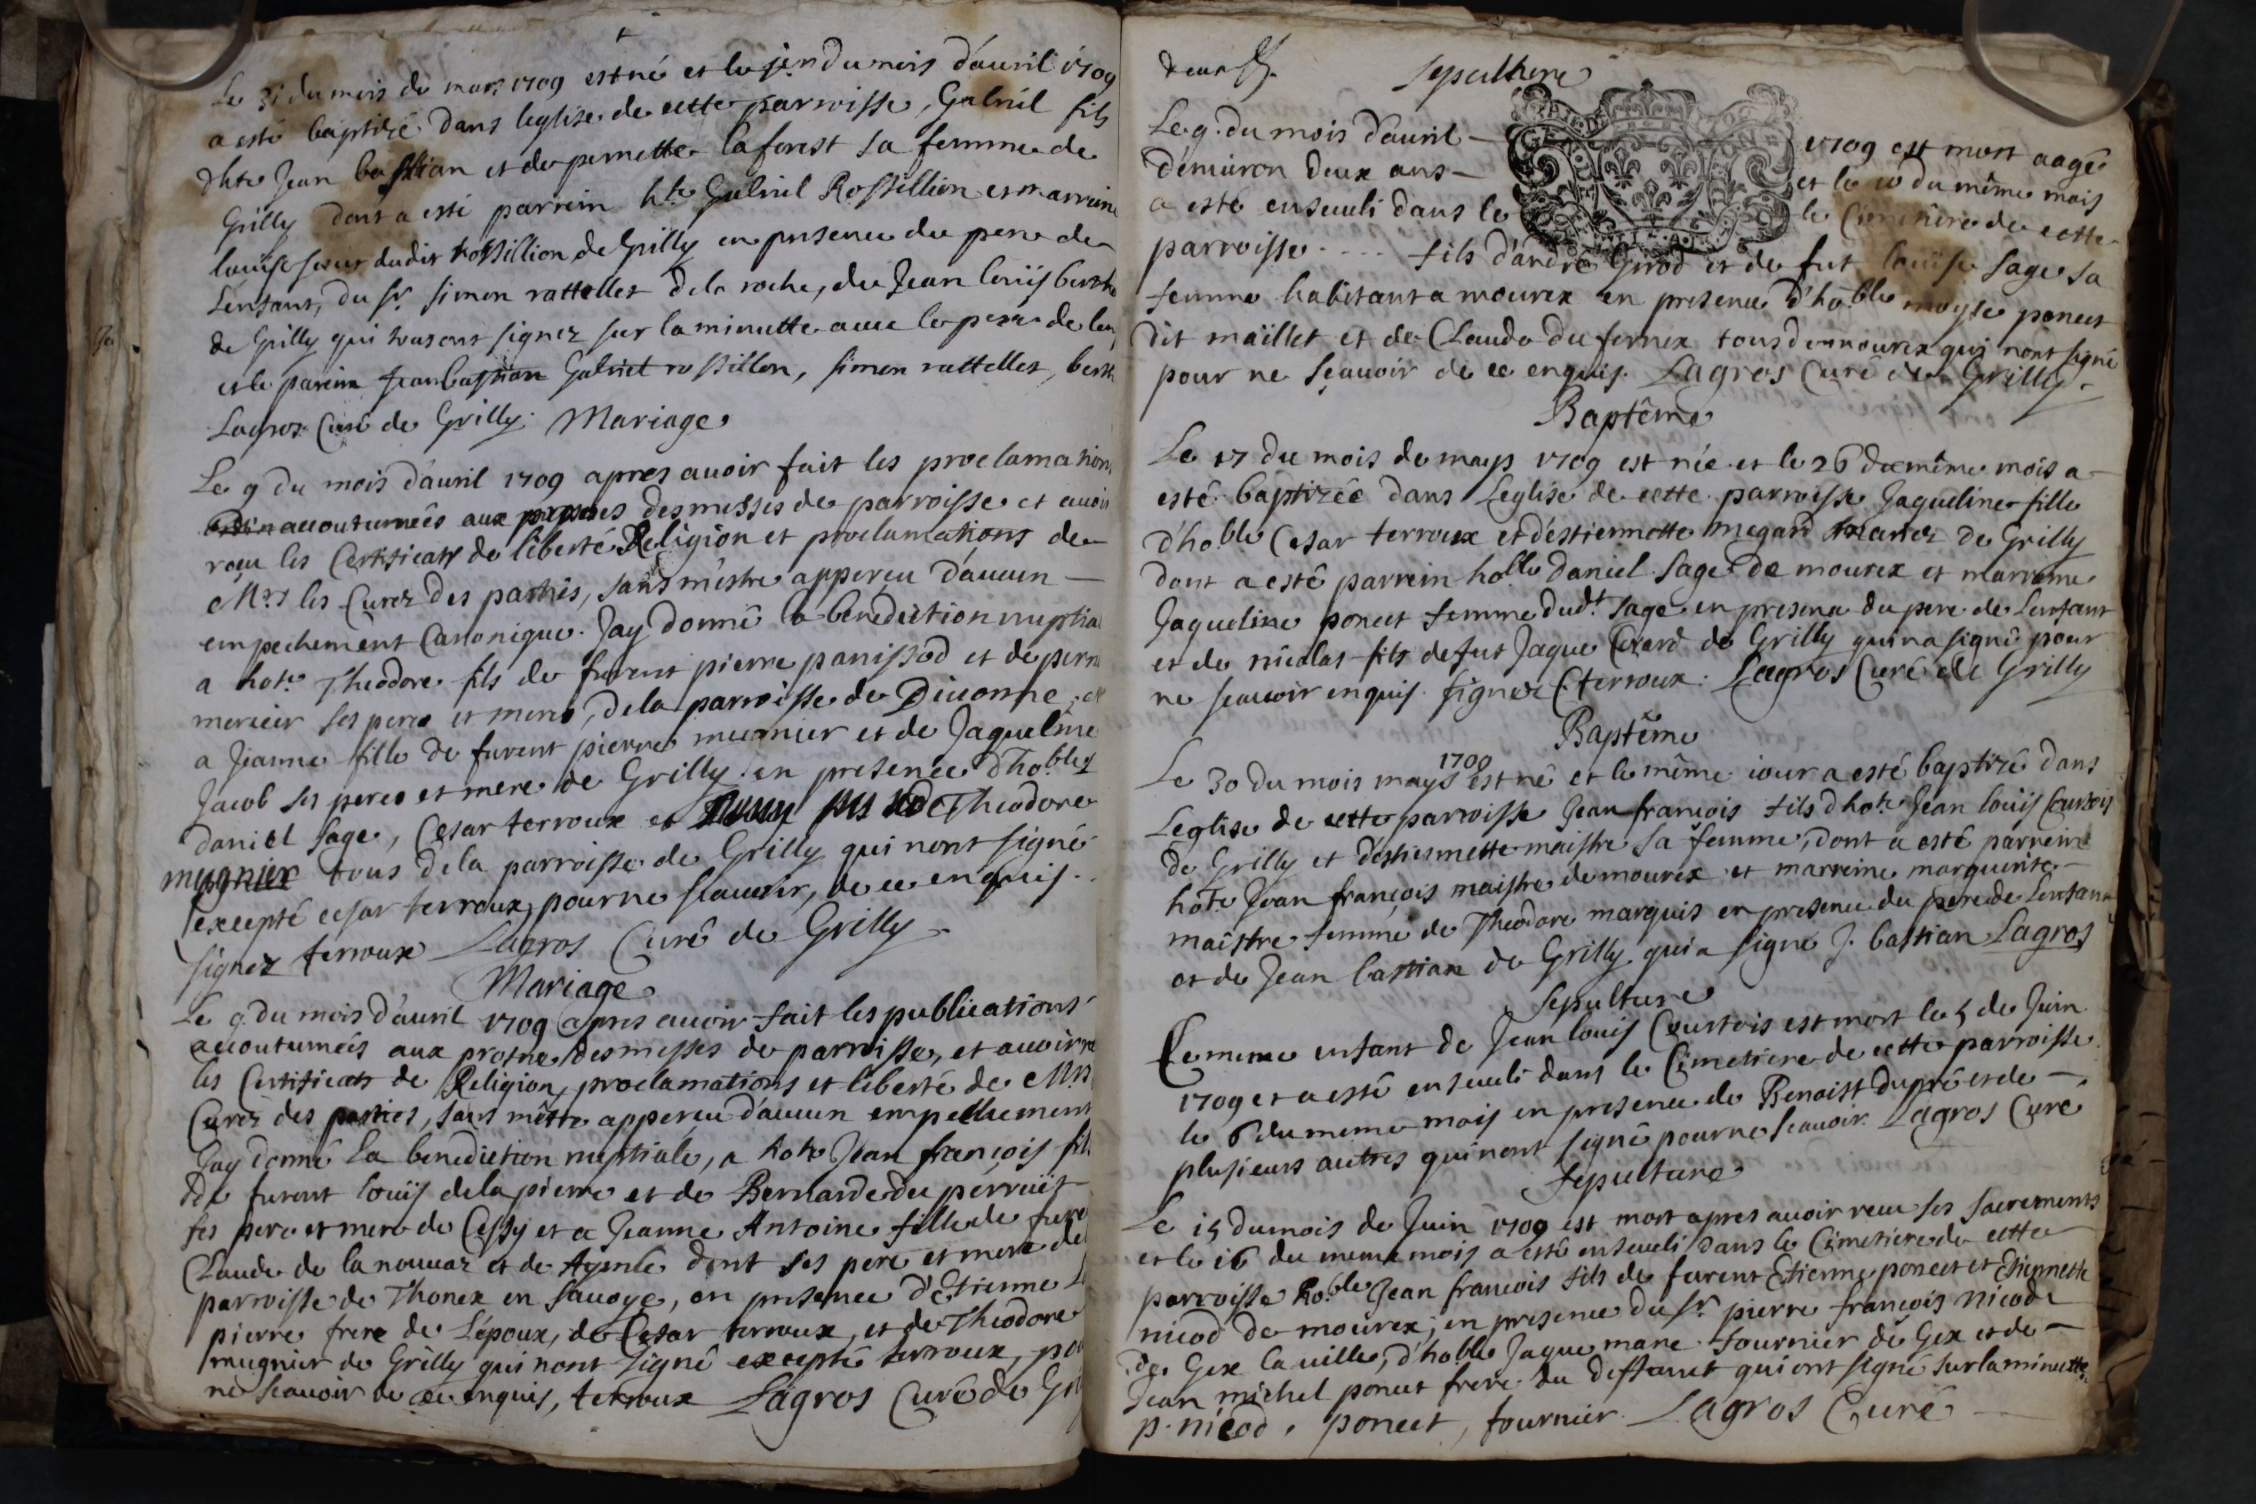 Le 31 du mois de mars 1709 est né et le du mois d'auril 1709
a esté baptizé dans leglise de cette parroisse, Gabriel fils
d'hte Jean bastian et de pernette laforest sa femme de
Grilly dont a esté parrein hte Gabriel Rossillion et marreine
louise seur dudit rossillion de Grilly en presence du pere de
Lenfant, du sr simon rattellet de la roche, de Jean louis
de Grilly qui signez sur la minutte auec le pere de
et le parein Jean bastian Gabriel rossillon, simon rattellet,
Lagros Curé de Grilly. Mariage
Le 9 du mois d'auril 1709 apres auoir fait les proclamations
accoutumées aux prosnes des messes de parroisse et auoir
receu les Certificats de liberté Religion et proclamations de
Mrs les Curez des parties, sans m'estre apperçeu d'aucun
empechement Canonique. Jay donné la benediction nuptia
a hote Theodore fils de furent pierre panissod et de
mercier ses pere et mere, de la parroisse de Diuonne, et
a Jeanne fille de furent pierre meunier et de Jaqueline
Jacob ses pere et mere de Grilly en presence d'hobles
daniel sage, Cesar terroux et de Theodore
mugnier tous de la parroisse de Grilly qui nont signé
excepté cesar terroux pour ne scauoir, de ce enquis.
signez terroux Lagros Curé de Grilly
Mariage
Le 9 du mois d'auril 1709 apres auoir fait les publications
accoutumées aux prosne des messes de parroisse, et auoir
les Certificats de Religion, proclamations et liberté de Mrs
Curez des parties, sans m'estre apperçeu d'aucun empechement
Jay donné la benediction nuptiale, a hote Jean françois fils
de furent louis de la pierre et de Bernarde du perruit
ses pere et mere de Cessy et a Jeanne Antoine fille de
Claude de la nouuaz et de dont ses pere et mere de
parroisse de Thonex en Sauoye, en presence d'Etienne
pierre frere de L'époux, de Cesar terroux, et de Theodore
mugnier de Grilly qui nont signé excepté terroux,
ne scauoir de ce enquis, terroux Lagros Curé de
deux
sepulture
Le 9 du mois d'auril 1709 est mort aagé
d'enuiron deux ans et le 10 du même mois
a esté enseueli dans le le Cimetiere de cette
parroisse ... fils d'andré Girod et de fut louise sage sa
femme habitant a mourex en presence d'hoble moyse poncet
dit maillet et de Claude du fernex tous de mourex qui nont signé
pour ne sçauoir de ce enquis. Lagros Curé de Grilly
Baptême
Le 17 du mois de mays 1709 est née et le 26 du même mois a
esté baptizée dans Leglise de cette parroisse Jaqueline fille
d'hoble Cesar terroux et d'estiennette megard mariez de Grilly
dont a esté parrein hoble daniel sage de mourex et marreine
Jaqueline poncet femme dudt sage en presence du pere de Lenfant
et de nicolas fils de fut Jaque de Grilly qui na signé pour
ne scauoir enquis. signez C. terroux. Lagros Curé de Grilly
Baptême
1700
Le 30 du mois mays est né et le même iour a esté baptizé dans
Leglise de cette parroisse Jean francois fils d'hote Jean louis Courtois
de Grilly et d'estiennette maistre sa femme, dont a esté parrein
hote Jean françois maistre de mourex et marreine marguerite
maistre femme de Theodore marquis en presence du pere de Lenfant
et de Jean bastian de Grilly qui a signé J. bastian Lagros
sepulture
Le meme enfant de Jean louis Courtois est mort le 5 de Juin
1709 et a esté enseueli dans le Cimetiere de cette parroisse
le 6 du meme mois en presence de Benoist dupré et de
plusieurs autres qui nont signé pour ne scauoir. Lagros Curé
sepulture
Le 15 du mois de Juin 1709 est mort apres auoir receu ses sacrements
et le 16 du meme mois a esté enseueli dans le Cimetiere de cette
parroisse hoble Jean francois fils de furent Etienne poncet et Etiennette
nicod de mourex; en presence du sr pierre françois nicod
de Gex la ville, d'hoble Jaque marie fournier de Gex et de
Jean michel poncet frere du deffunct qui ont signé sur la minutte
p. nicod, poncet, fournier Lagros Curé